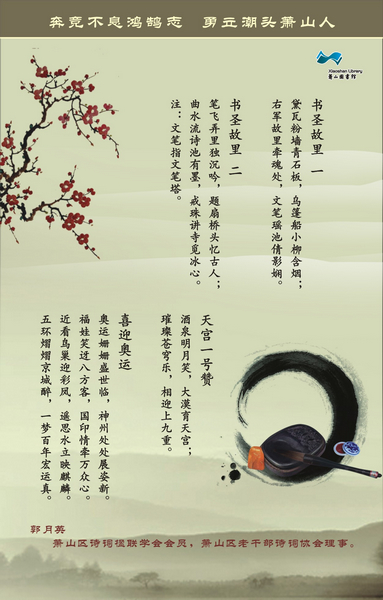 奔竞不息鸿鹄志 勇立潮头萧山人
Xiaoshan Library
萧山图书馆
书圣故里 一
黛瓦粉墙青石板，乌蓬船小柳含烟；
右军故里牵魂处，文笔瑶池倩影娴。
书圣故里 二
笔飞弄里独沉吟，题扇桥头忆古人；
曲水流诗池有墨，戒珠讲寺觅冰心。
注：文笔指文笔塔。
天宫一号赞
酒泉明月笑，大漠育天宫；
璀璨苍穹乐，相迎上九重。
喜迎奥运
奥运姗姗盛世临，神州处处展姿新。
福娃笑迓八方客，国印情牵万众心。
近看鸟巢迎彩凤，遥思水立映麒麟。
五环熠熠京城醉，一梦百年宏运真。
郭月英
萧山区诗词楹联学会会员，萧山区老干部诗词协会理事。